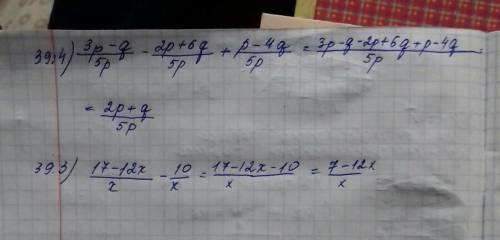 39.4) (3p-q)/5p - (2p+6q)/5p + (p-4q)/5p = (3p-q-2p+6q+p-4q)/5p
= (2p+q)/5p
39.3) (17-12x)/x - 10/x = (17-12x-10)/x = (7-12x)/x